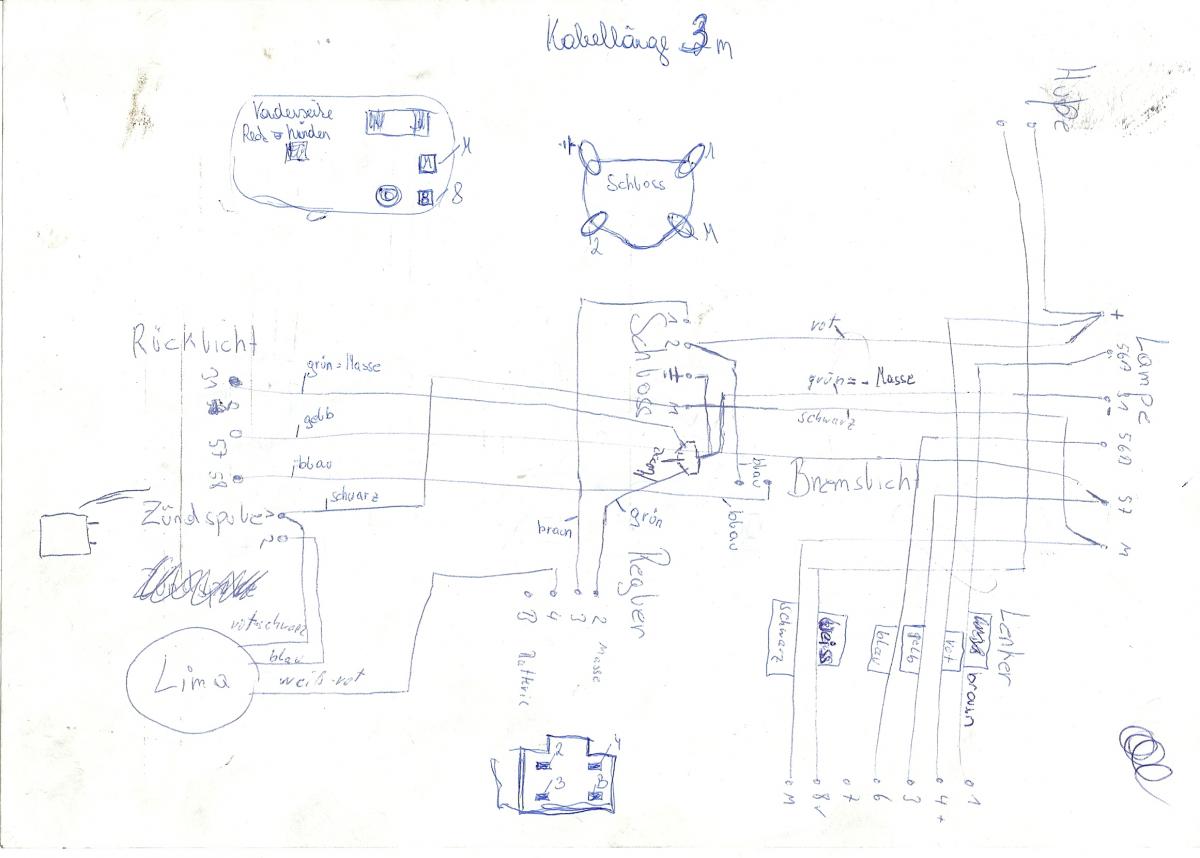 Kabellänge 3 m
Hupe
Vorderseite
M
8
Schloss
1
2
M
Rücklicht
31
grün = Masse
gelb
57
58
blau
schwarz
Zündspule
Schloss
1
2
M
rot
grün = - Masse
schwarz
Masse
blau
Bremslicht
blau
braun
grün
Regler
Lampe
+
56A
31
56A
57
M
Lenker
rot-schwarz
blau
weiß-rot
Lima
B 4 3 2
Batterie
Masse
schwarz
weiss
blau
gelb
rot
braun
M 8 7 6 3 4+ 1
2 4
3 B